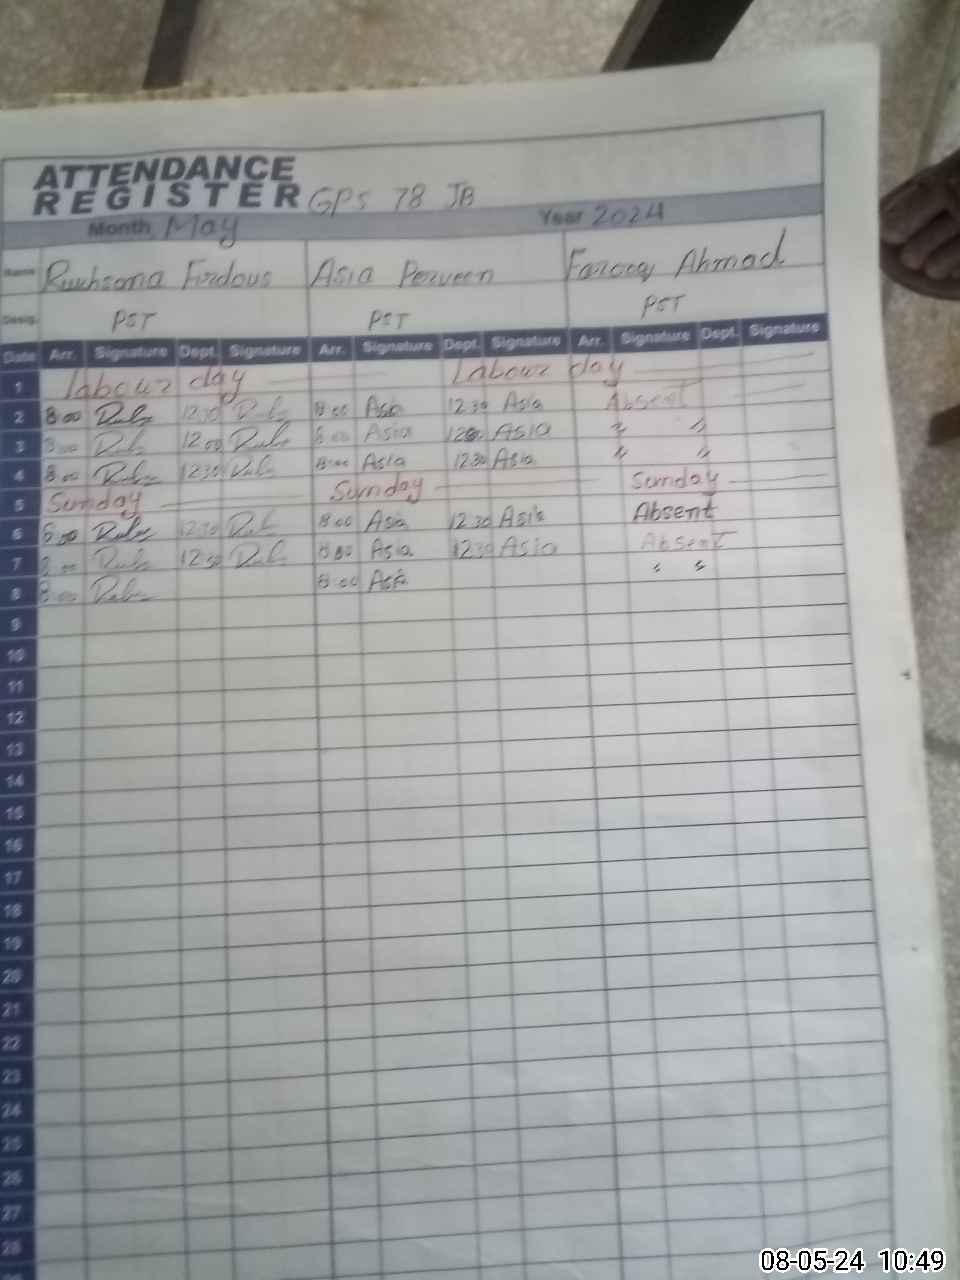 ATTENDANCE
REGISTER GPS 78 JB
Month May Year 2024
Name Rukhsana Firdous Asia Perveen Farooq Ahmad
Desig. PST PST PST
Date Arr. Signature Dept. Signature Arr. Signature Dept. Signature Arr. Signature Dept. Signature
1 labour day Labour day
2 8:00 12:30 8:00 Asia 12:30 Asia Absent
3 8:00 12:00 8:00 Asia Asia "  "
4 8:00 12:30 8:00 Asia 12:30 Asia "  "
5 Sunday Sunday Sunday
6 8:00 12:30 8:00 Asia 12:30 Asia Absent
7 8:00 12:30 8:00 Asia 12:30 Asia Absent
8 8:00 8:00 Asia "  "
9
10
11
12
13
14
15
16
17
18
19
20
21
22
23
24
25
26
27
28
08-05-24 10:49